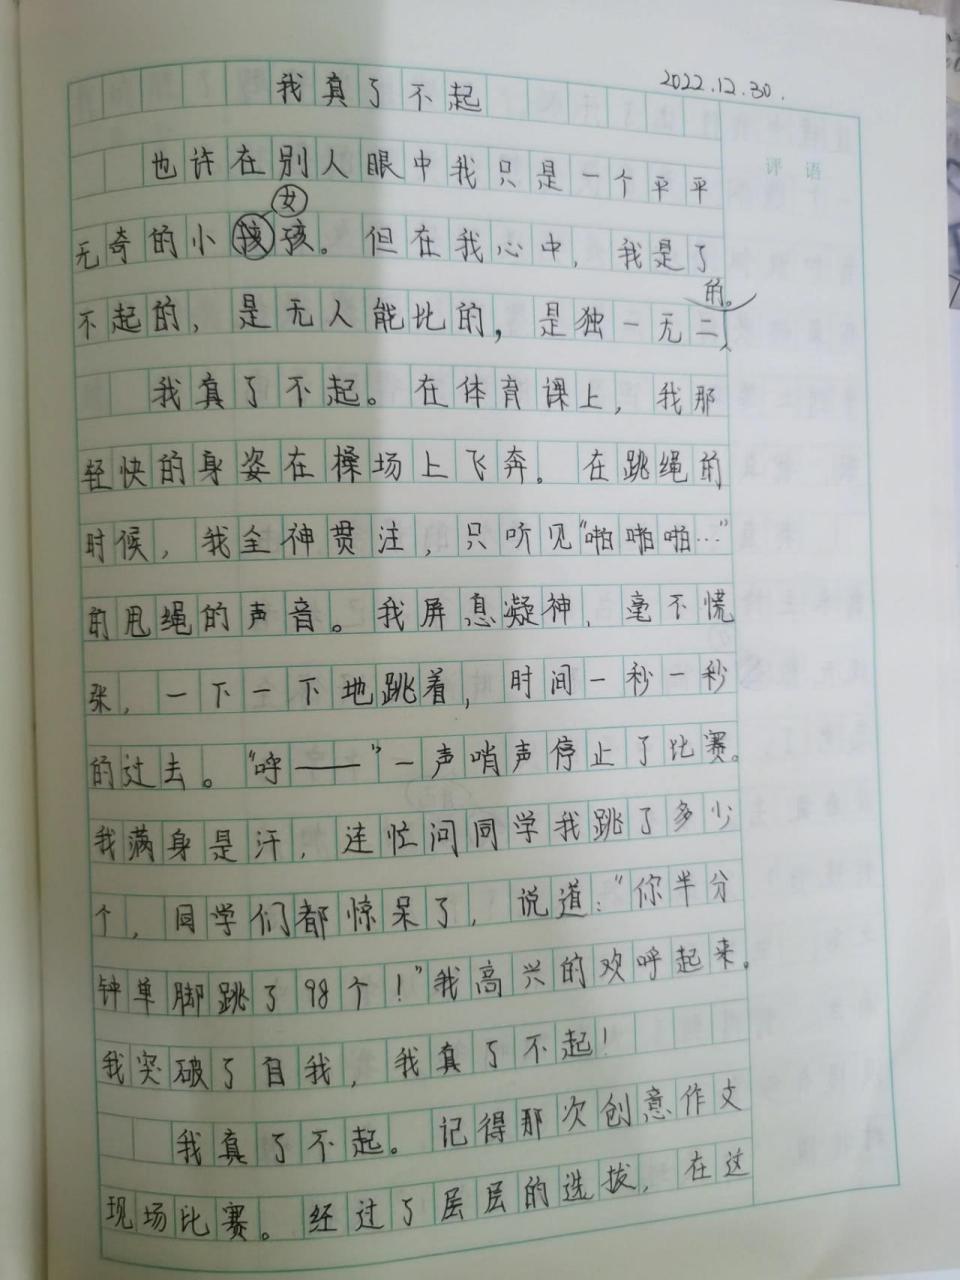 2022.12.30.
我真了不起
评 语
也许在别人眼中我只是一个平平
女
无奇的小孩孩。但在我心中，我是了
的。
不起的，是无人能比的，是独一无二
我真了不起。在体育课上，我那
轻快的身姿在操场上飞奔。在跳绳的
时候，我全神贯注，只听见“啪啪啪…”
的甩绳的声音。我屏息凝神，毫不慌
张，一下一下地跳着，时间一秒一秒
的过去。“呼——”一声哨声停止了比赛。
我满身是汗，连忙问同学我跳了多少
个，同学们都惊呆了，说道：“你半分
钟单脚跳了98个！”我高兴的欢呼起来。
我突破了自我，我真了不起！
我真了不起。记得那次创意作文
现场比赛。经过了层层的选拔，在这